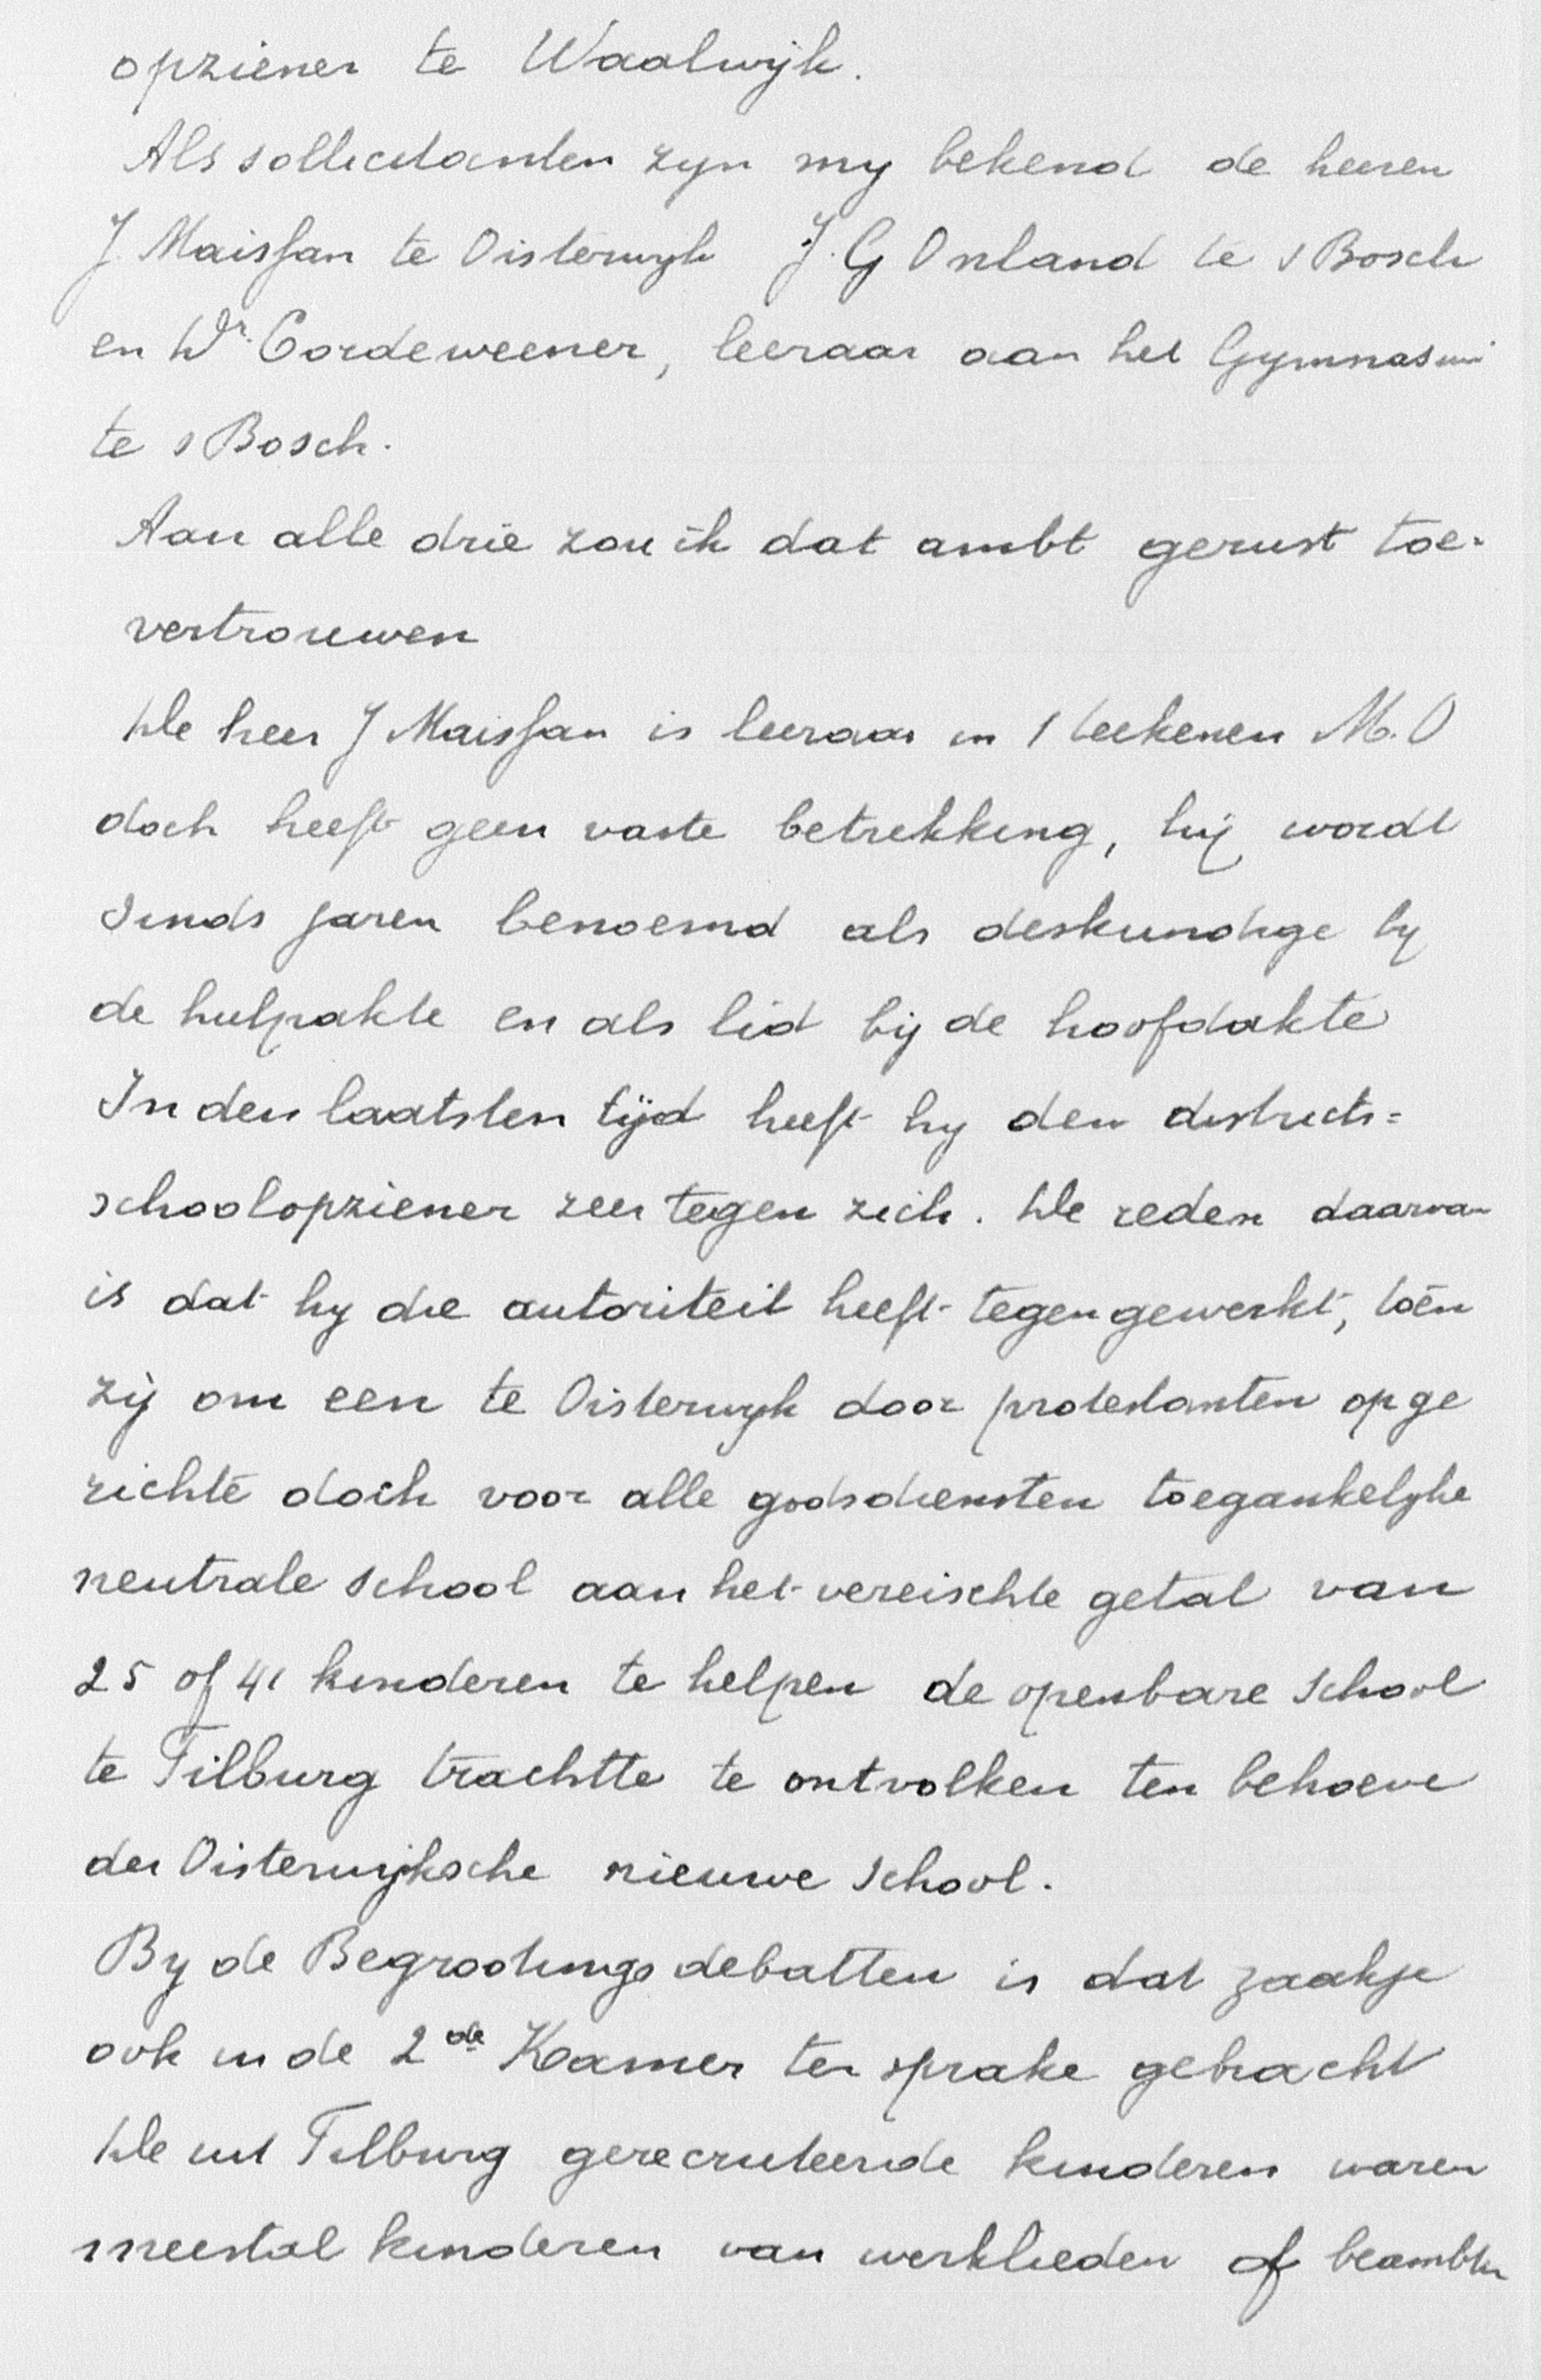 opziener te Waalwijk.
Als sollicitanten zyn my bekend de heeren
J. Maisfan te Oisterwyk J. G Onland te s Bosch
en Dr. Cordeweener, leeraar aan het Gymnasium
te s Bosch.
Aan alle drie zou ik dat ambt gerust toe-
vertrouwen
De heer J Maisfan is leeraar in 't teekenen M.O
doch heeft geen vaste betrekking, hij wordt
sinds jaren benoemd als deskundige by
de hulpakte en als lid bij de hoofdakte
In den laatsten tijd heeft hy den districts=
schoolopziener zeer tegen zich. De reden daarvan
is dat hy die autoriteit heeft tegengewerkt, toen
zij om een te Oisterwyk door protestanten opge
richte doch voor alle godsdiensten toegankelyke
neutrale school aan het vereischte getal van
25 of 41 kinderen te helpen de openbare school
te Tilburg trachtte te ontvolken ten behoeve
der Oisterwijksche nieuwe school.
By de Begrootingsdebatten is dat zaakje
ook in de 2de Kamer ter sprake gebracht
De uit Tilburg gerecruteerde kinderen waren
meestal kinderen van werklieden of beambten